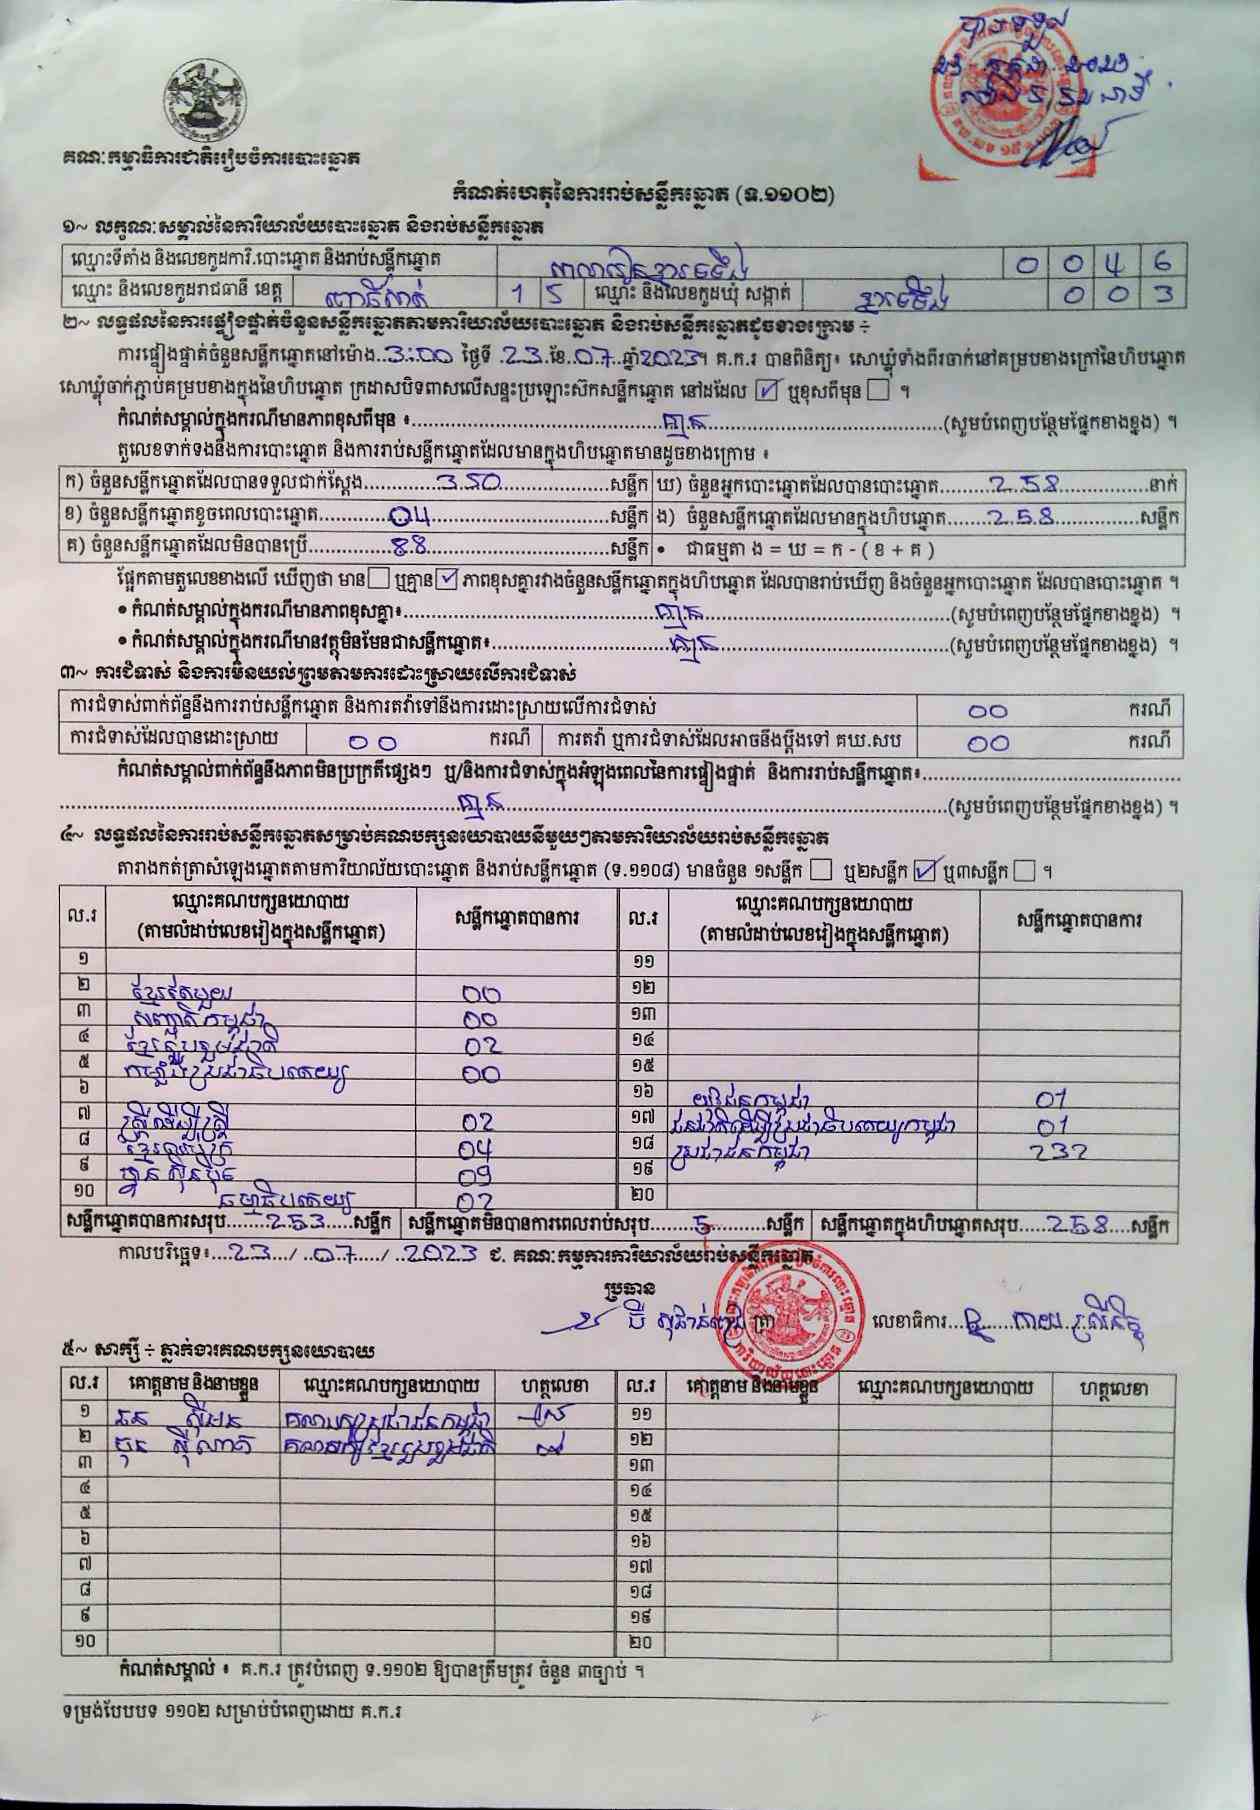 គណៈកម្មាធិការជាតិរៀបចំការបោះឆ្នោត
កំណត់ហេតុនៃការរាប់សន្លឹកឆ្នោត (ទ.១១០២)
១~ លក្ខណៈសម្គាល់នៃការិយាល័យបោះឆ្នោត និងរាប់សន្លឹកឆ្នោត
ឈ្មោះទីតាំង និងលេខកូដការិ.បោះឆ្នោត និងរាប់សន្លឹកឆ្នោត សាលារៀនខ្នារទទឹង 0 0 4 6
ឈ្មោះ និងលេខកូដរាជធានី ខេត្ត ពោធិ៍សាត់ 1 5 ឈ្មោះ និងលេខកូដឃុំ សង្កាត់ ខ្នារទទឹង 0 0 3
២~ លទ្ធផលនៃការផ្ទៀងផ្ទាត់ចំនួនសន្លឹកឆ្នោតតាមការិយាល័យបោះឆ្នោត និងរាប់សន្លឹកឆ្នោតដូចខាងក្រោម ÷
ការផ្ទៀងផ្ទាត់ចំនួនសន្លឹកឆ្នោតនៅម៉ោង..3:00 ថ្ងៃទី .23.ខែ.07..ឆ្នាំ2023។ គ.ក.រ បានពិនិត្យ៖ សោឃ្លុំទាំងពីរចាក់នៅគម្របខាងក្រៅនៃហិបឆ្នោត
សោឃ្លុំចាក់ភ្ជាប់គម្របខាងក្នុងនៃហិបឆ្នោត ក្រដាសបិទពាសលើសន្ទះប្រឡោះស៊កសន្លឹកឆ្នោត នៅដដែល ☑ ឬខុសពីមុន ☐ ។
កំណត់សម្គាល់ក្នុងករណីមានភាពខុសពីមុន ៖ គ្មាន (សូមបំពេញបន្ថែមផ្នែកខាងខ្នង) ។
តួលេខទាក់ទងនឹងការបោះឆ្នោត និងការរាប់សន្លឹកឆ្នោតដែលមានក្នុងហិបឆ្នោតមានដូចខាងក្រោម ៖
ក) ចំនួនសន្លឹកឆ្នោតដែលបានទទួលជាក់ស្តែង 350 សន្លឹក ឃ) ចំនួនអ្នកបោះឆ្នោតដែលបានបោះឆ្នោត 258 នាក់
ខ) ចំនួនសន្លឹកឆ្នោតខូចពេលបោះឆ្នោត 04 សន្លឹក ង) ចំនួនសន្លឹកឆ្នោតដែលមានក្នុងហិបឆ្នោត 258 សន្លឹក
គ) ចំនួនសន្លឹកឆ្នោតដែលមិនបានប្រើ 88 សន្លឹក • ជាធម្មតា ង = ឃ = ក - ( ខ + គ )
ផ្អែកតាមតួលេខខាងលើ ឃើញថា មាន ☐ ឬគ្មាន ☑ ភាពខុសគ្នារវាងចំនួនសន្លឹកឆ្នោតក្នុងហិបឆ្នោត ដែលបានរាប់ឃើញ និងចំនួនអ្នកបោះឆ្នោត ដែលបានបោះឆ្នោត ។
• កំណត់សម្គាល់ក្នុងករណីមានភាពខុសគ្នា៖ គ្មាន (សូមបំពេញបន្ថែមផ្នែកខាងខ្នង) ។
• កំណត់សម្គាល់ក្នុងករណីមានវត្ថុមិនមែនជាសន្លឹកឆ្នោត៖ គ្មាន (សូមបំពេញបន្ថែមផ្នែកខាងខ្នង) ។
៣~ ការជំទាស់ និងការមិនយល់ព្រមតាមការដោះស្រាយលើការជំទាស់
ការជំទាស់ពាក់ព័ន្ធនឹងការរាប់សន្លឹកឆ្នោត និងការតវ៉ាទៅនឹងការដោះស្រាយលើការជំទាស់ 00 ករណី
ការជំទាស់ដែលបានដោះស្រាយ 00 ករណី ការតវ៉ា ឬការជំទាស់ដែលអាចនឹងប្តឹងទៅ គឃ.សប 00 ករណី
កំណត់សម្គាល់ពាក់ព័ន្ធនឹងភាពមិនប្រក្រតីផ្សេងៗ ឬ/និងការជំទាស់ក្នុងអំឡុងពេលនៃការផ្ទៀងផ្ទាត់ និងការរាប់សន្លឹកឆ្នោត៖
គ្មាន (សូមបំពេញបន្ថែមផ្នែកខាងខ្នង) ។
៤~ លទ្ធផលនៃការរាប់សន្លឹកឆ្នោតសម្រាប់គណបក្សនយោបាយនីមួយៗតាមការិយាល័យរាប់សន្លឹកឆ្នោត
តារាងកត់ត្រាសំឡេងឆ្នោតតាមការិយាល័យបោះឆ្នោត និងរាប់សន្លឹកឆ្នោត (ទ.១១០៨) មានចំនួន ១សន្លឹក ☐ ឬ២សន្លឹក ☑ ឬ៣សន្លឹក ☐ ។
ល.រ ឈ្មោះគណបក្សនយោបាយ (តាមលំដាប់លេខរៀងក្នុងសន្លឹកឆ្នោត) សន្លឹកឆ្នោតបានការ ល.រ ឈ្មោះគណបក្សនយោបាយ (តាមលំដាប់លេខរៀងក្នុងសន្លឹកឆ្នោត) សន្លឹកឆ្នោតបានការ
១ ១១
២ ខ្មែរតែមួយ 00 ១២
៣ សញ្ជាតិកម្ពុជា 00 ១៣
៤ ខ្មែររួបរួមជាតិ 02 ១៤
៥ កម្លាំងប្រជាធិបតេយ្យ 00 ១៥
៦ ១៦ យុវជនកម្ពុជា 01
៧ ស្ត្រីដើម្បីស្ត្រី 02 ១៧ ជនជាតិដើម្បីប្រជាធិបតេយ្យកម្ពុជា 01
៨ 04 ១៨ ប្រជាជនកម្ពុជា 232
៩ ហ្វ៊ុនស៊ិនប៉ិច 09 ១៩
១០ ធម្មាធិបតេយ្យ 02 ២០
សន្លឹកឆ្នោតបានការសរុប 253 សន្លឹក សន្លឹកឆ្នោតមិនបានការពេលរាប់សរុប 5 សន្លឹក សន្លឹកឆ្នោតក្នុងហិបឆ្នោតសរុប 258 សន្លឹក
កាលបរិច្ឆេទ៖ 23 / 07 / 2023 ជ. គណៈកម្មការការិយាល័យរាប់សន្លឹកឆ្នោត
ប្រធាន
ត្រា លេខាធិការ
៥~ សាក្សី ÷ ភ្នាក់ងារគណបក្សនយោបាយ
ល.រ គោត្តនាម និងនាមខ្លួន ឈ្មោះគណបក្សនយោបាយ ហត្ថលេខា ល.រ គោត្តនាម និងនាមខ្លួន ឈ្មោះគណបក្សនយោបាយ ហត្ថលេខា
១ គណបក្សប្រជាជនកម្ពុជា ១១
២ គណបក្សខ្មែររួបរួមជាតិ ១២
៣ ១៣
៤ ១៤
៥ ១៥
៦ ១៦
៧ ១៧
៨ ១៨
៩ ១៩
១០ ២០
កំណត់សម្គាល់ ៖ គ.ក.រ ត្រូវបំពេញ ទ.១១០២ ឱ្យបានត្រឹមត្រូវ ចំនួន ៣ច្បាប់ ។
ទម្រង់បែបបទ ១១០២ សម្រាប់បំពេញដោយ គ.ក.រ